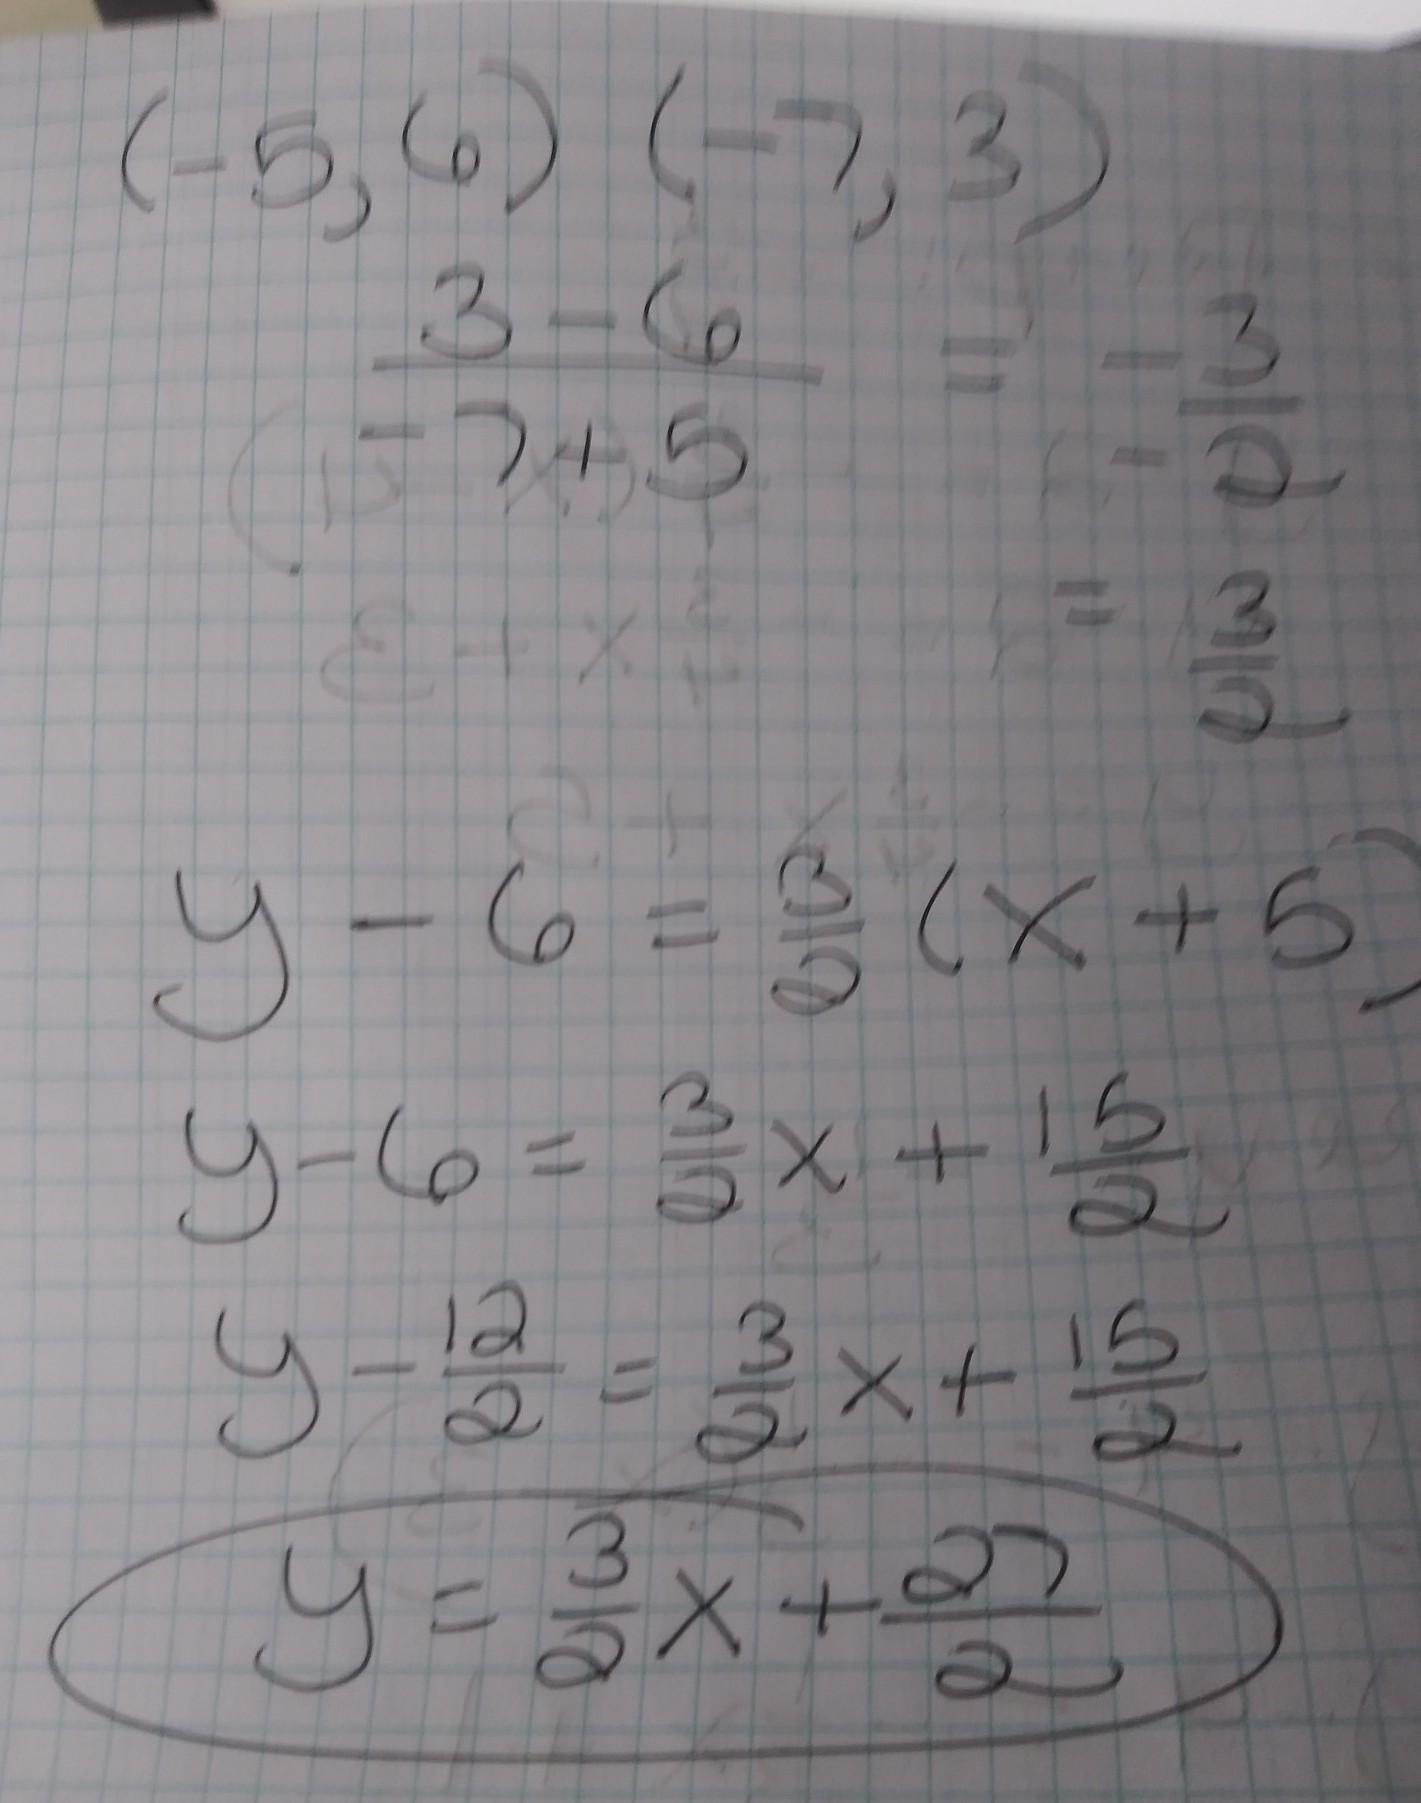 (-5, 6) (-7, 3)
3 - 6 / -7 + 5 = -3 / -2
= 3/2
y - 6 = 3/2 (x + 5)
y - 6 = 3/2 x + 15/2
y - 12/2 = 3/2 x + 15/2
y = 3/2 x + 27/2